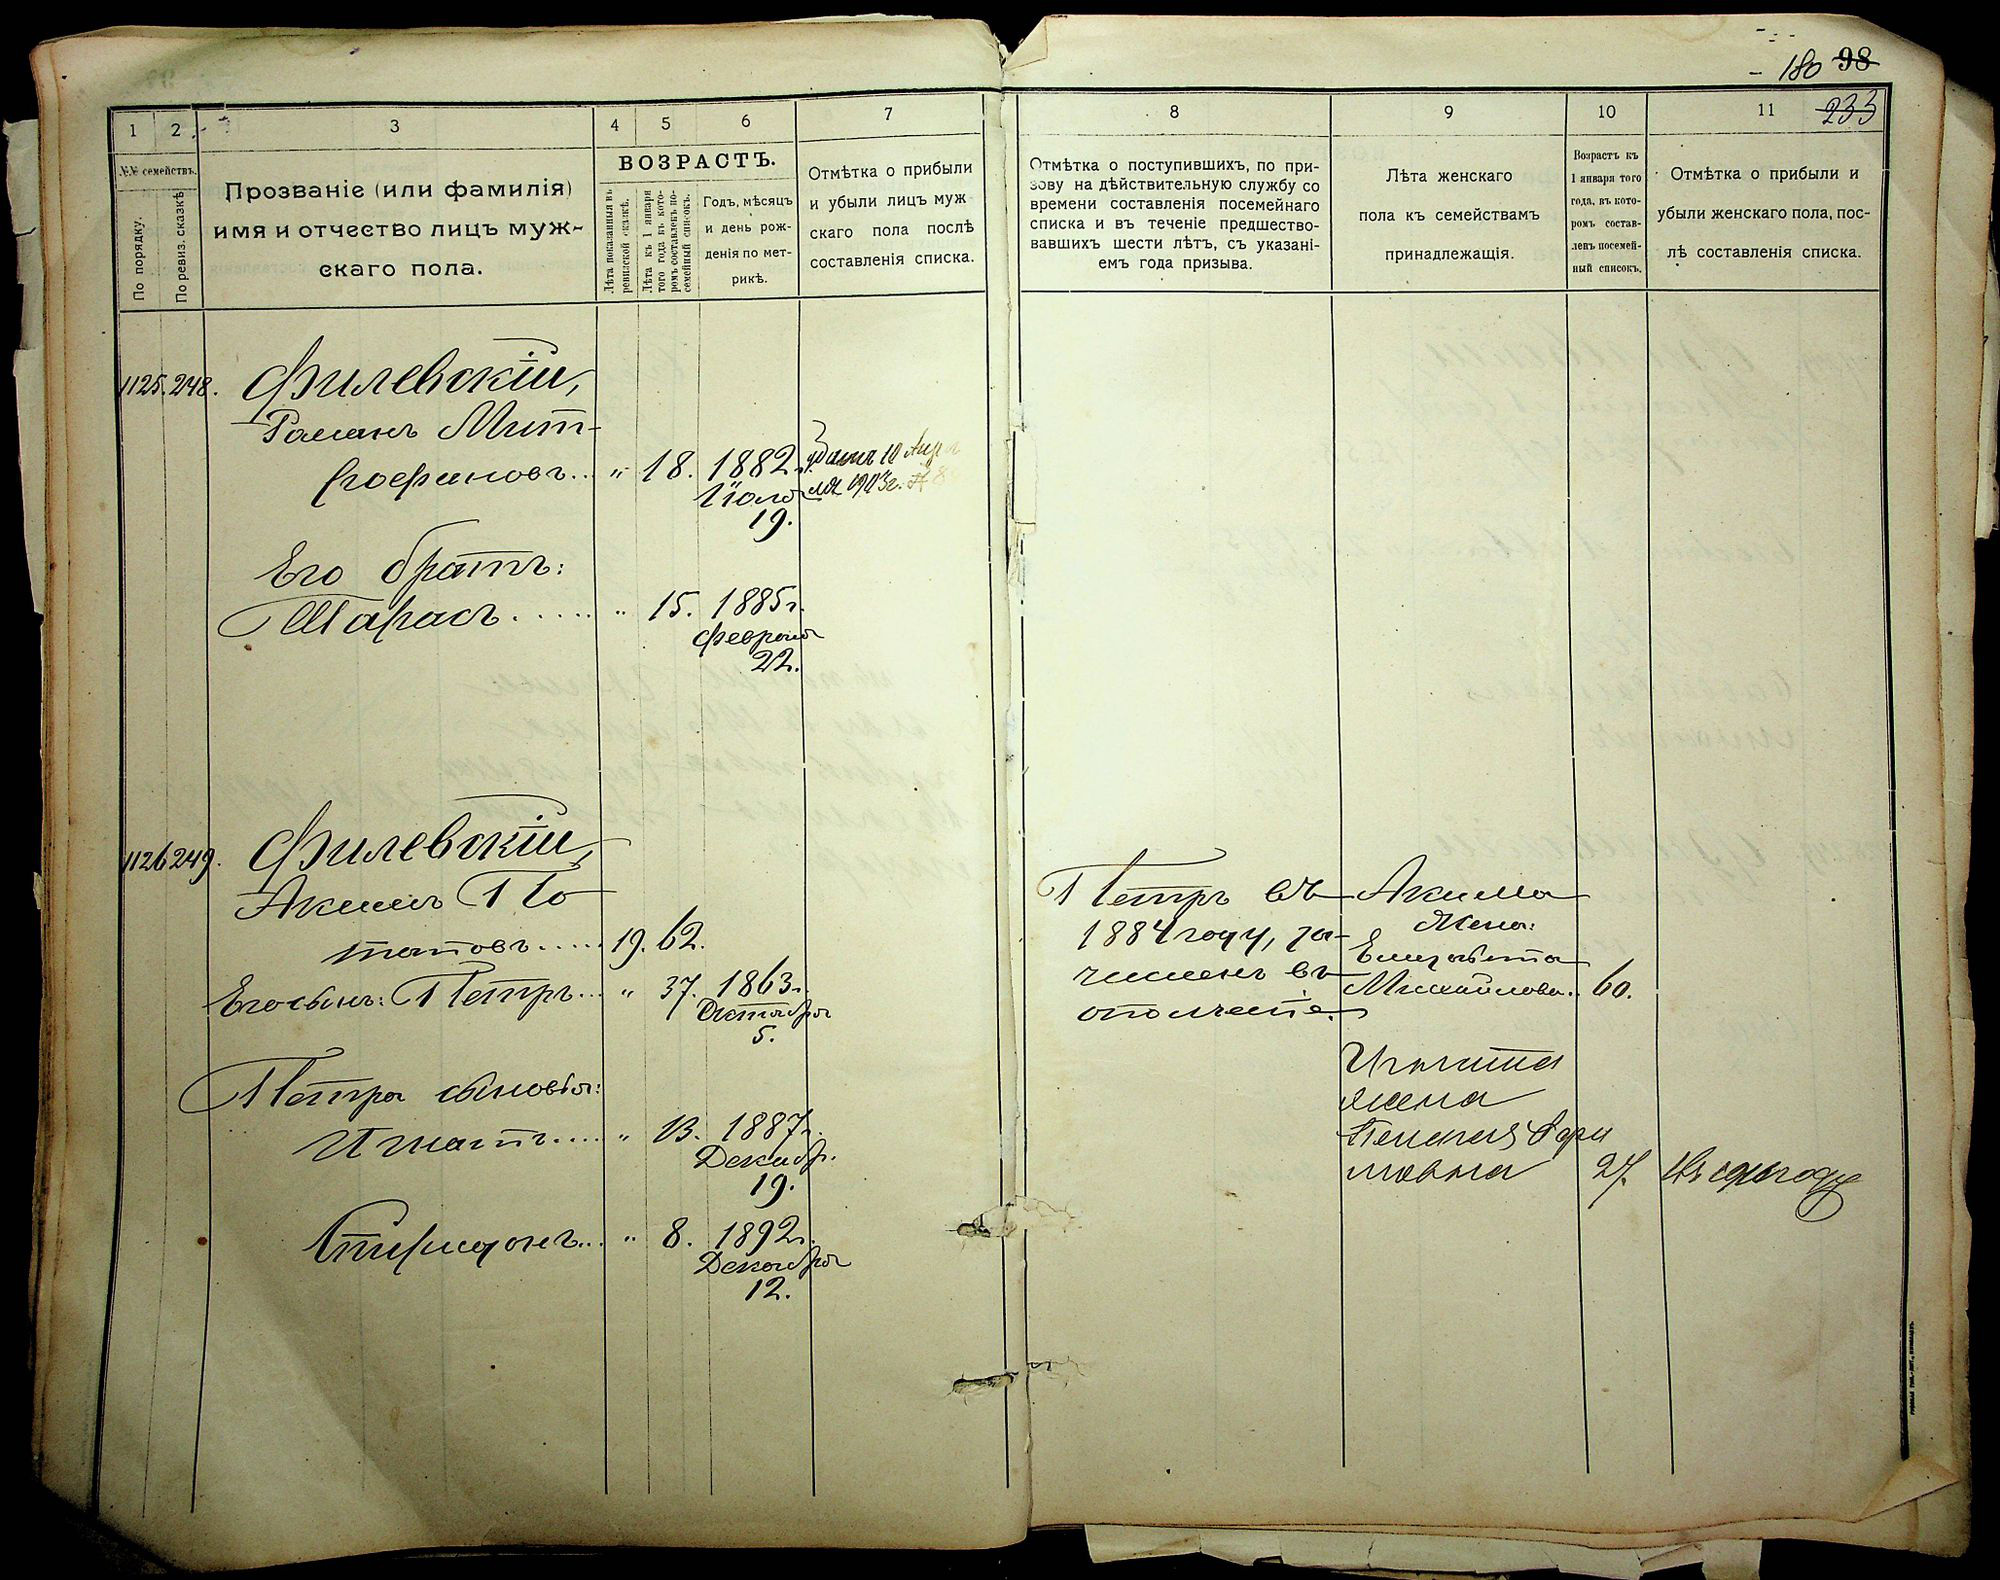 180 98
233
1
2
3
4
5
6
7
8
9
10
11
№№ семействъ.
По порядку.
По ревиз. сказкѣ
Прозваніе (или фамилія)
имя и отчество лицъ муж-
скаго пола.
ВОЗРАСТЪ.
Лѣта показанныя въ
ревизской сказкѣ.
Лѣта къ 1 января
того года въ кото-
ромъ составленъ по-
семейный списокъ.
Годъ, мѣсяцъ
и день рож-
денія по мет-
рикѣ.
Отмѣтка о прибыли
и убыли лицъ муж
скаго пола послѣ
составленія списка.
Отмѣтка о поступившихъ, по при-
зову на дѣйствительную службу со
времени составленія посемейнаго
списка и въ теченіе предшество-
вавшихъ шести лѣтъ, съ указані-
емъ года призыва.
Лѣта женскаго
пола къ семействамъ
принадлежащія.
Возрастъ къ
1 января того
года, въ кото-
ромъ состав-
ленъ посемей-
ный списокъ.
Отмѣтка о прибыли и
убыли женскаго пола, пос-
лѣ составленія списка.
1125. 248. Филевскій,
Романъ Мит-
рофановъ... " 18. 1882 г.
Іюля
19.
10 Апрѣ
ля 1903 г. №
Его братъ:
Тарасъ..... " 15. 1885 г.
Февраля
22.
1126 249. Филевскій,
Акимъ По-
таповъ..... 19. 62.
Его сынъ: Петръ... " 37. 1863 г.
Октября
5.
Петра сыновья:
Игнатъ.... " 13. 1887 г.
Декабр.
19.
Спиридонъ... " 8. 1892 г.
Декабря
12.
Петръ въ
1884 году, за-
численъ въ
ополченіе.
Акима
жена:
Елизавета
Михайлова.. 60.
Игната
жена
Пелагея
27.